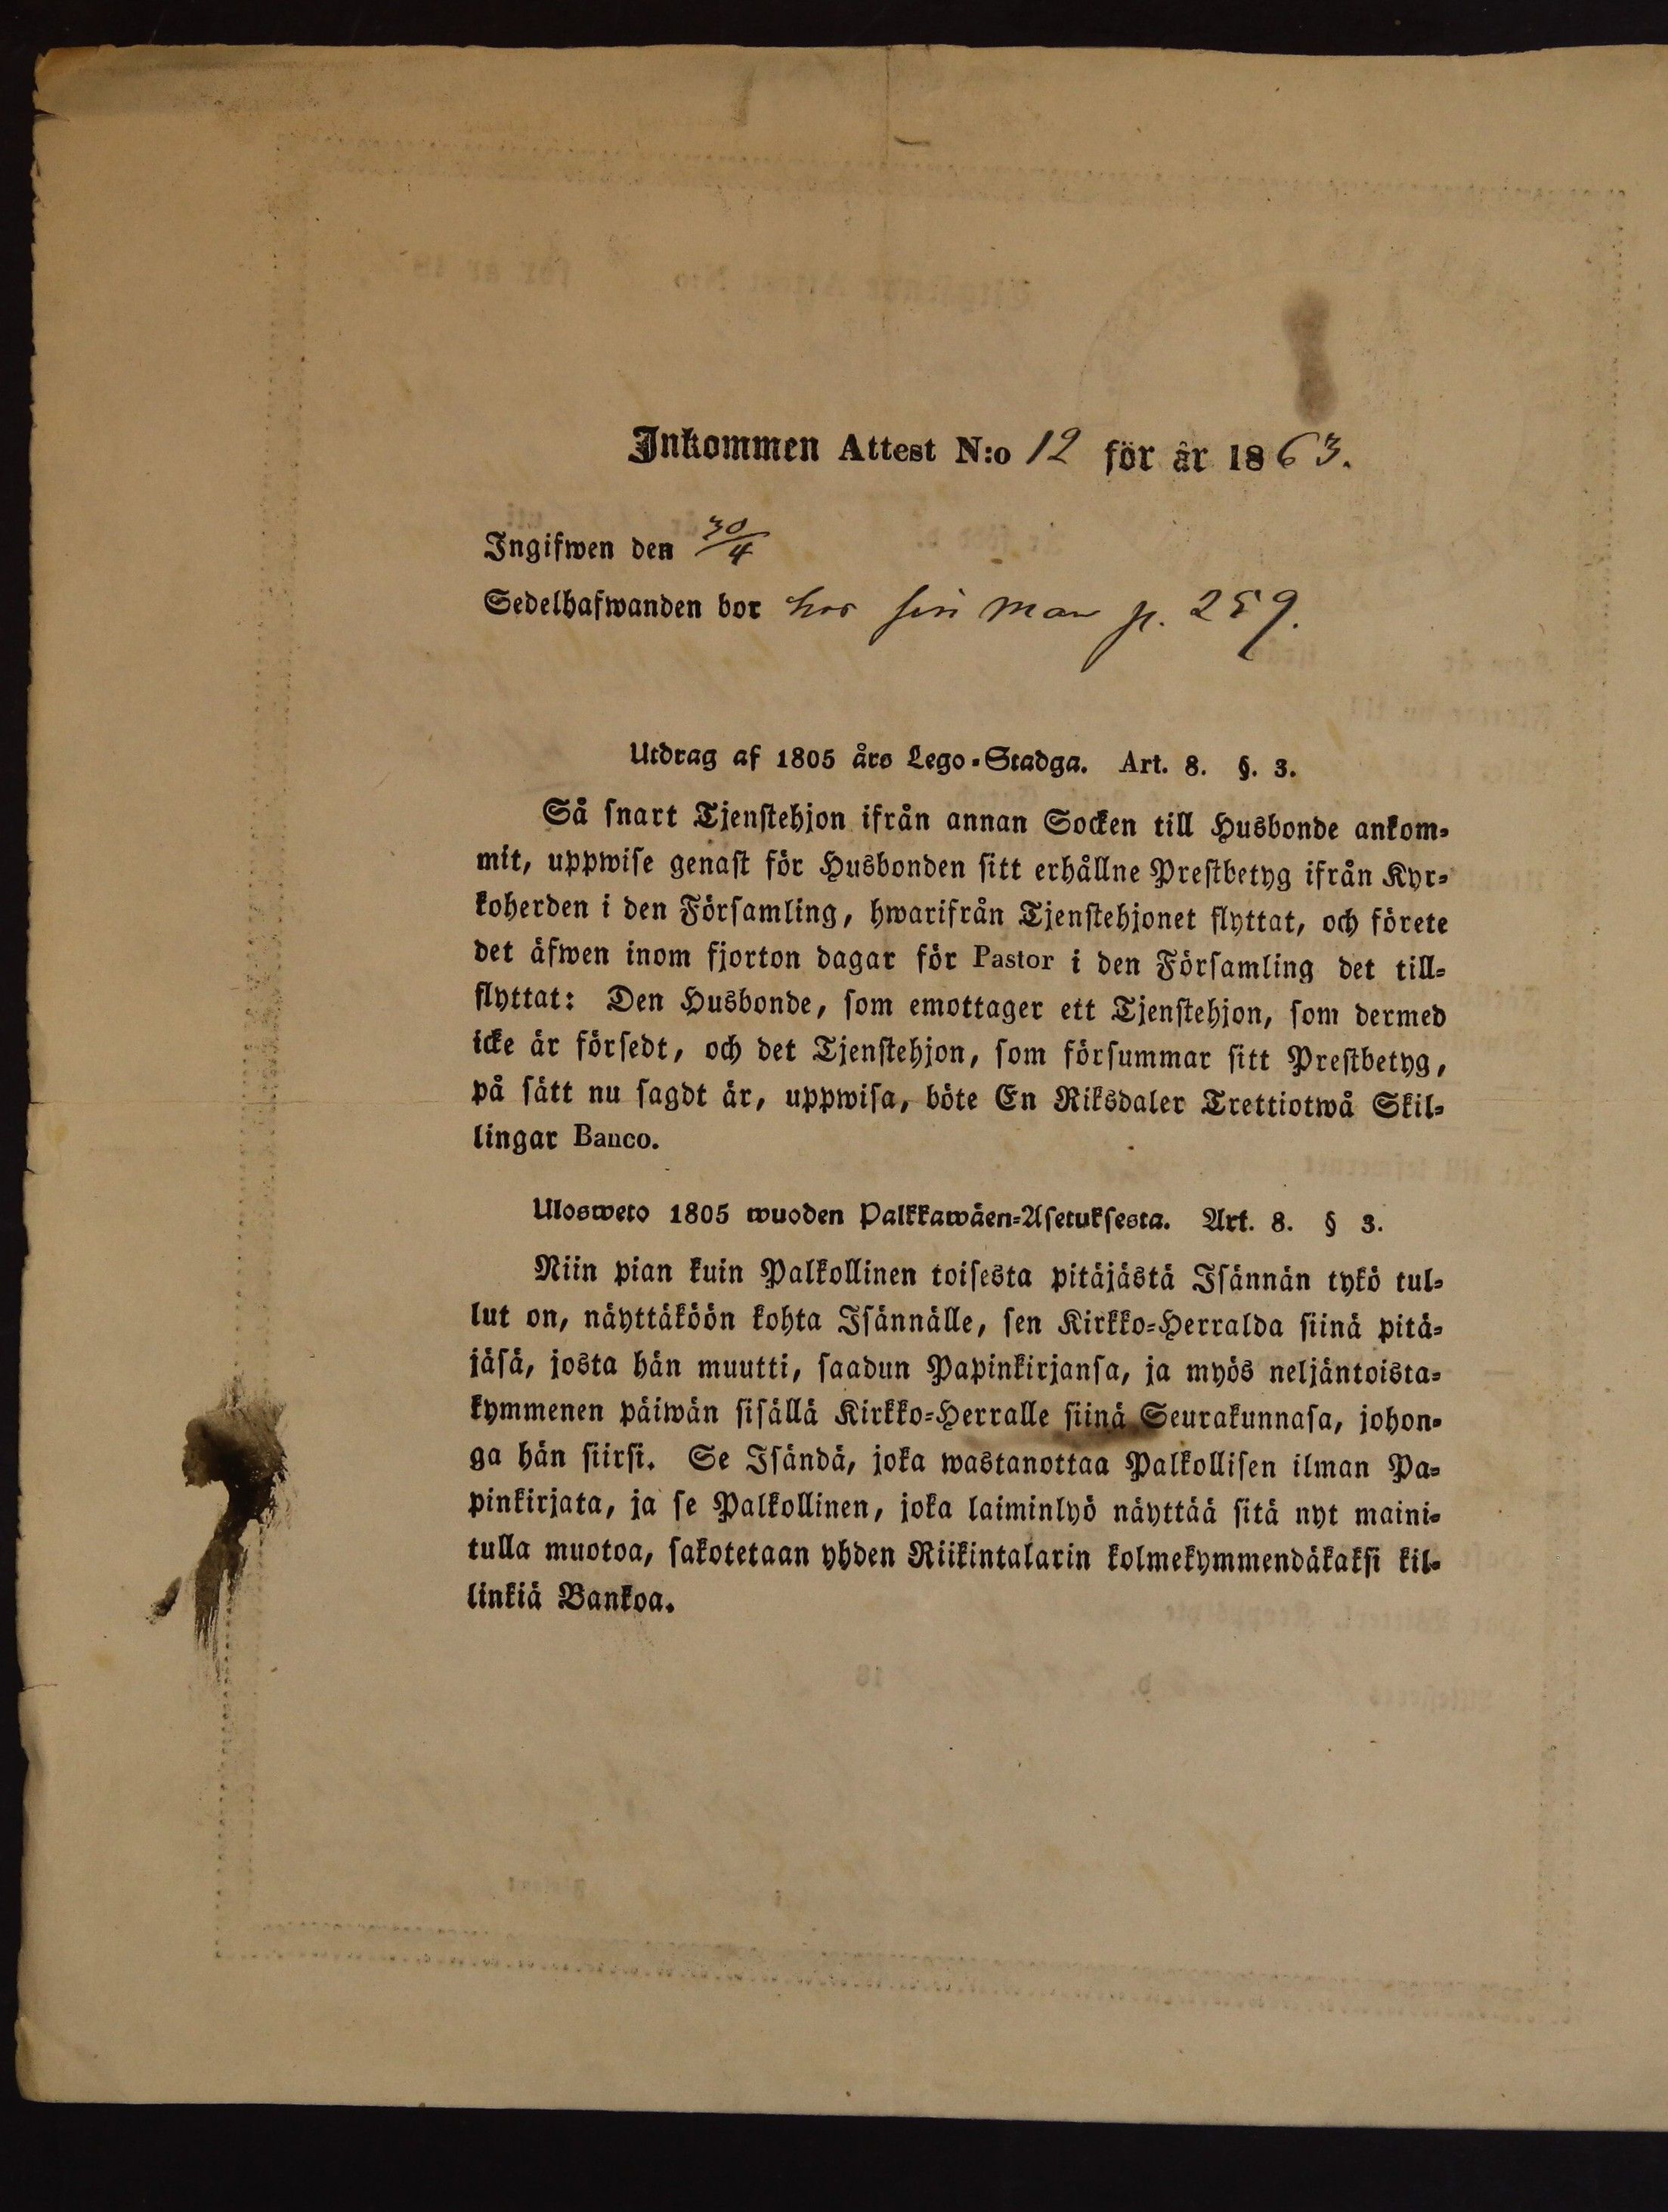 Inkommen Attest N:o 12 för år 1863.
Ingifwen den 30/4
Sedelhafwanden bor hos sin man p. 259.
Utdrag af 1805 års Lego-Stadga. Art. 8. §. 3.
Så snart Tjenstehjon ifrån annan Socken till Husbonde ankom-
mit, uppwise genast för Husbonden sitt erhållne Prestbetyg ifrån Kyr-
koherden i den Församling, hwarifrån Tjenstehjonet flyttat, och förete
det äfwen inom fjorton dagar för Pastor i den Församling det till-
flyttat: Den Husbonde, som emottager ett Tjenstehjon, som dermed
icke är försedt, och det Tjenstehjon, som försummar sitt Prestbetyg,
på sätt nu sagdt är, uppwisa, böte En Riksdaler Trettiotwå Skil-
lingar Banco.
Ulosweto 1805 wuoden Palkkawäen-Asetuksesta. Art. 8. § 3.
Niin pian kuin Palkollinen toisesta pitäjästä Isännän tykö tul-
lut on, näyttäköön kohta Isännälle, sen Kirkko-Herralda siinä pitä-
jäsä, josta hän muutti, saadun Papinkirjansa, ja myös neljäntoista-
kymmenen päiwän sisällä Kirkko-Herralle siinä Seurakunnasa, johon-
ga hän siirsi. Se Isändä, joka wastanottaa Palkollisen ilman Pa-
pinkirjata, ja se Palkollinen, joka laiminlyö näyttää sitä nyt maini-
tulla muotoa, sakotetaan yhden Riikintalarin kolmekymmendäkaksi kil-
linkiä Bankoa.